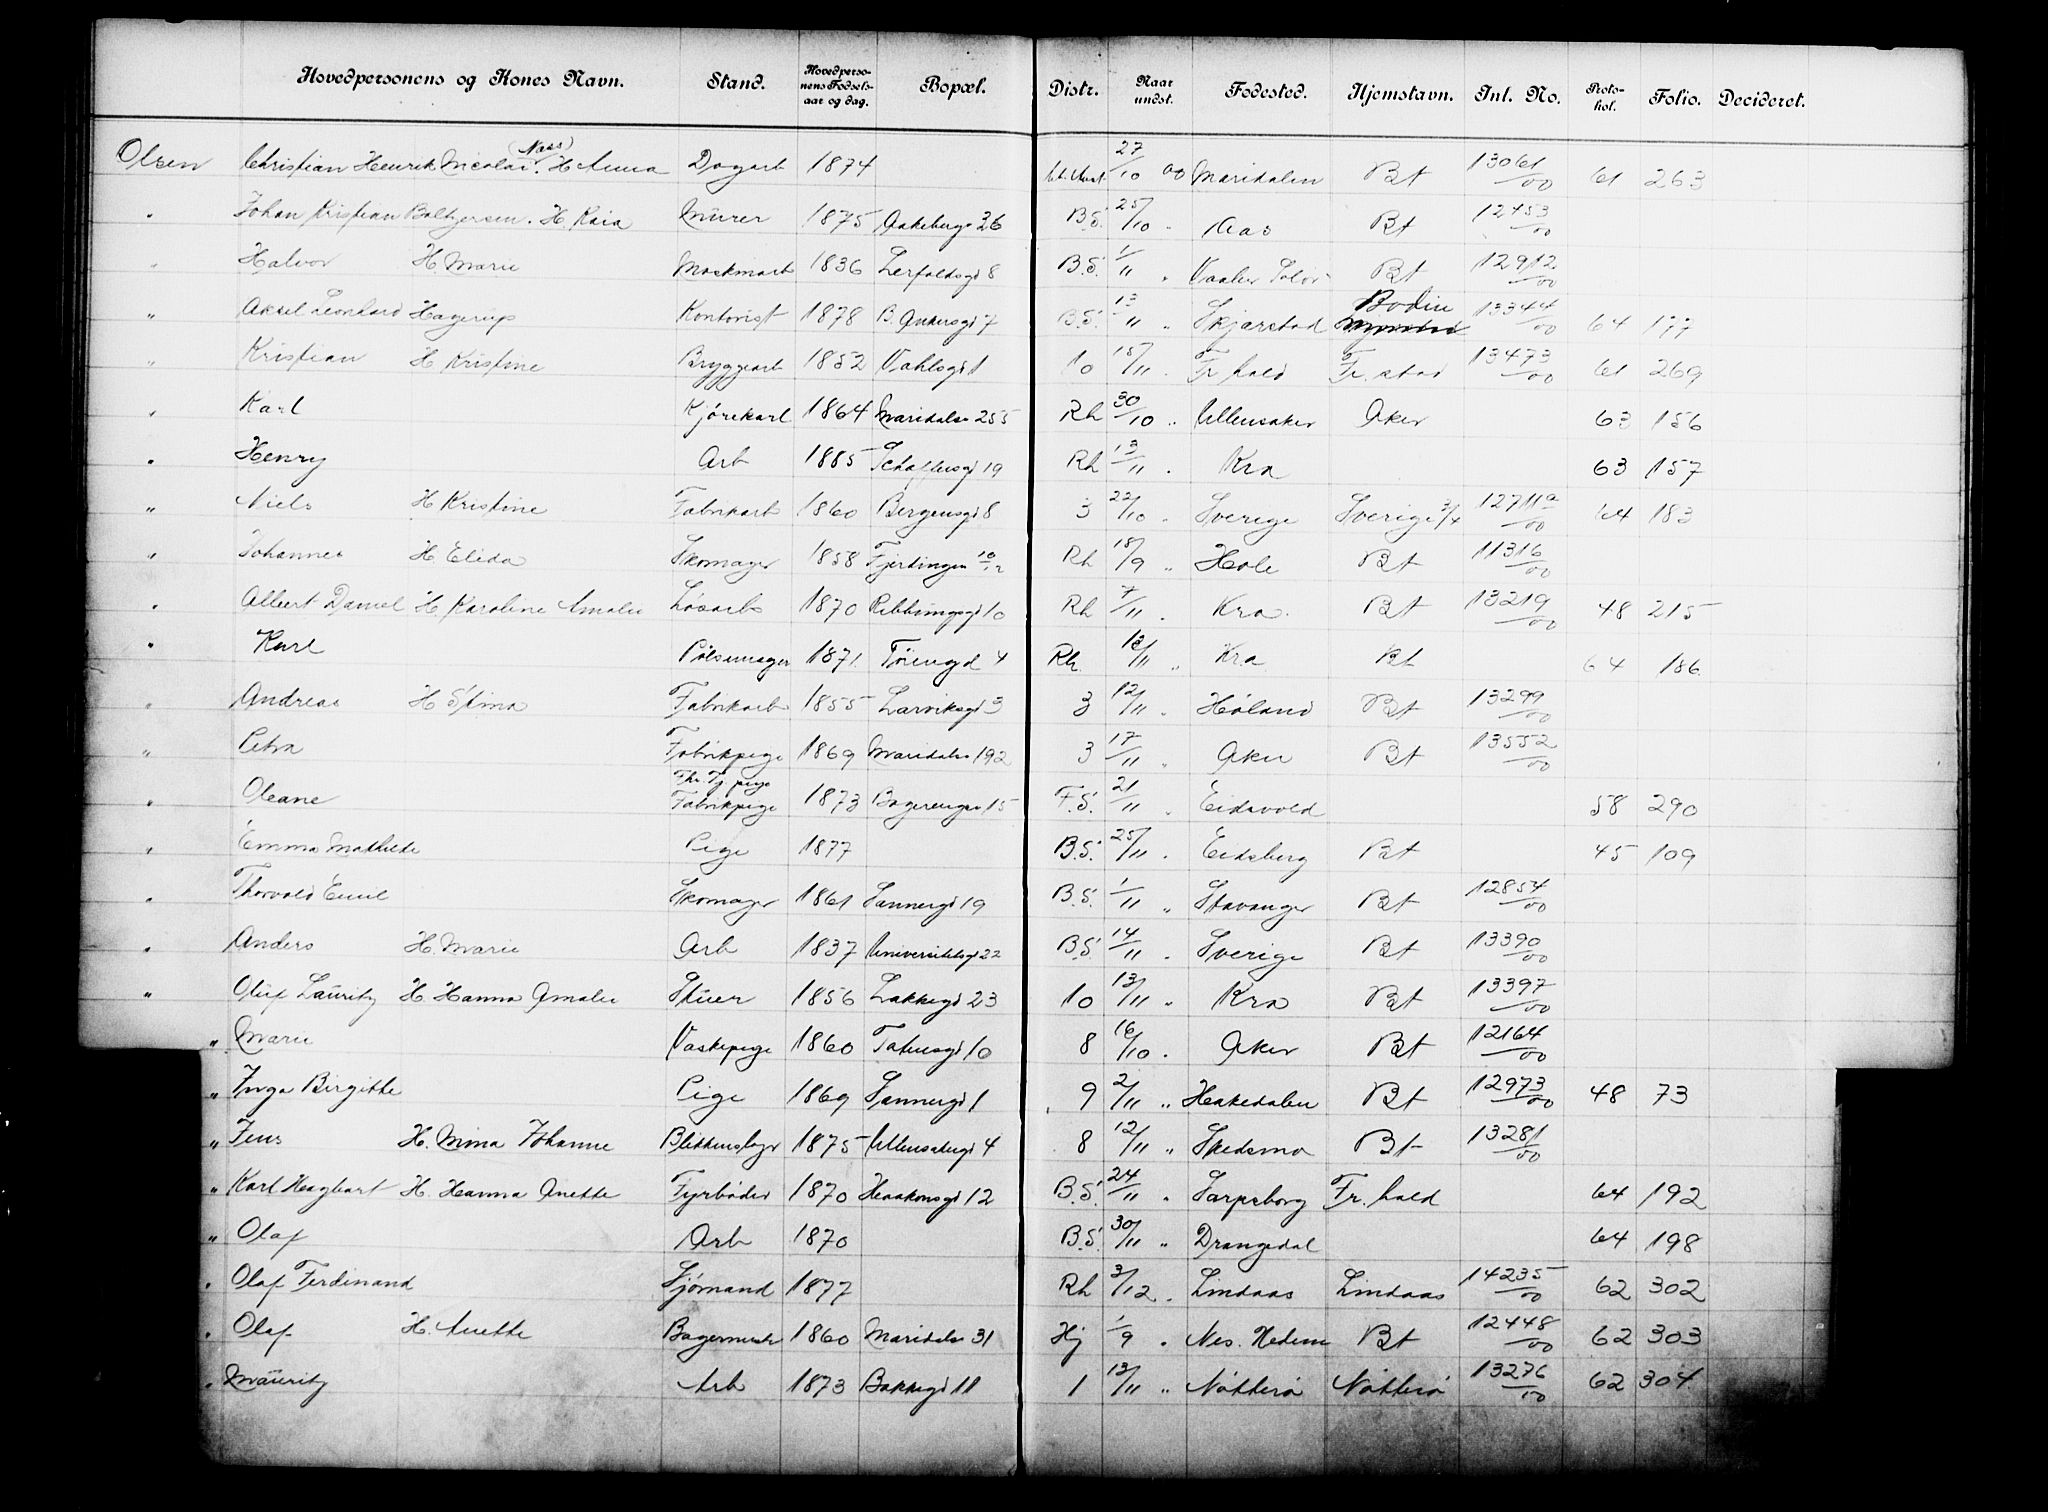 Hovedpersonens og Kones Navn. Stand. Hovedpersonens Fødselsaar og dag. Bopæl. Distr. Naar undst. Fødested. Hjemstavn. Inl. No. Protokol. Folio. Decideret.
Olsen Christian Henrik Nicolai (Næss) H. Anna Dagarb 1874 27/10 00 Maridalen Bt 13061/00 61 263
" Johan Kristian Baltzersen. H. Kaia Murer 1875 Aakebergv 36 B.S. 25/10 " Aas Bt 12453/00
" Halvor H Marie Maskinarb 1836 8 B.S. 1/11 " Vaaler Solør Bt 12912/00
" Aksel Leonhard Hagerup Kontorist 1878 B. Ankersgd 7 B.S. 13/11 " Skjærstad Bodin 13344/00 64 177
" Kristian H Kristine Bryggearb 1852 Vahlsgd 1 10 15/11 " Fr. hald Fr. stad 13473/00 61 269
" Karl Kjørekarl 1864 Maridalsv 255 Rh 30/10 " Ullensaker Aker 63 156
" Henry Arb 1885 Schaftersgd 19 Rh 13/11 " Kra 63 157
" Niels H Kristine Fabrikarb 1860 Bergensgd 8 3 22/10 " Sverige Sverige 3/4 12711a/00 64 183
" Johannes H Elida Skomager 1858 Fjerdingen 10/12 Rh 18/9 " Hole Bt 11316/00
" Albert Daniel H Karoline Amalie Løsarb 1870 Ribbungsgd 10 Rh 7/11 " Kra. Bt 13219/00 48 215
" Karl Pølsemager 1871 Tøiengd 4 Rh. 12/11 " Kra Bt 64 186
" Andreas H Stina Fabrikarb 1855 Larviksgd 3 3 12/11 " Høland Bt 13299/00
" Petra Fabrikpige 1869 Maridalsv 192 3 17/11 " Aker Bt 13552/00
" Oleane Fhv. Tj pige Fabrikpige 1873 Bogerengen 15 F.S. 21/11 " Eidsvold 58 290
" Emma Mathilde Pige 1877 B.S. 25/11 " Eidsberg Bt 45 109
" Thorvald Emil Skomager 1861 Sannergd 19 B.S. 1/11 " Stavanger Bt 12854/00
" Anders H. Marie Arb 1837 Universitetsgd 22 B.S. 14/11 " Sverige Bt 13390/00
" Oluf Lauritz H. Hanna Amalie Stuer 1856 Lakkegd 23 10 13/11 " Kra Bt 13397/00
" Marie Vaskepige 1860 Tøiensgd 10 8 16/10 " Aker Bt 12164/00
" Inga Birgitte Pige 1869 Sannergd 1 9 2/11 " Hakedalen Bt 12973/00 48 73
" Jens H. Mina Johanne Blikkenslager 1875 Ullensakergd 4 8 12/11 " Skedsmo Bt 13281/00
" Karl Hagbart H. Hanna Anette Fyrbøder 1870 Haakonsgd 12 B.S. 24/11 " Sarpsborg Fr. hald 64 192
" Olaf Arb 1870 B.S. 30/11 " Drangedal 64 198
" Olaf Ferdinand Sjømand 1877 Rh 3/12 " Lindaas Lindaas 14235/00 62 302
" Olaf H. Anette Bagermester 1860 Maridalsv 31 Hj 1/9 " Nes. Hedem Bt 12448/00 62 303
" Mauritz Arb 1873 Bakkegd 11 1 12/11 " Nøtterø Nøtterø 13276/00 62 304